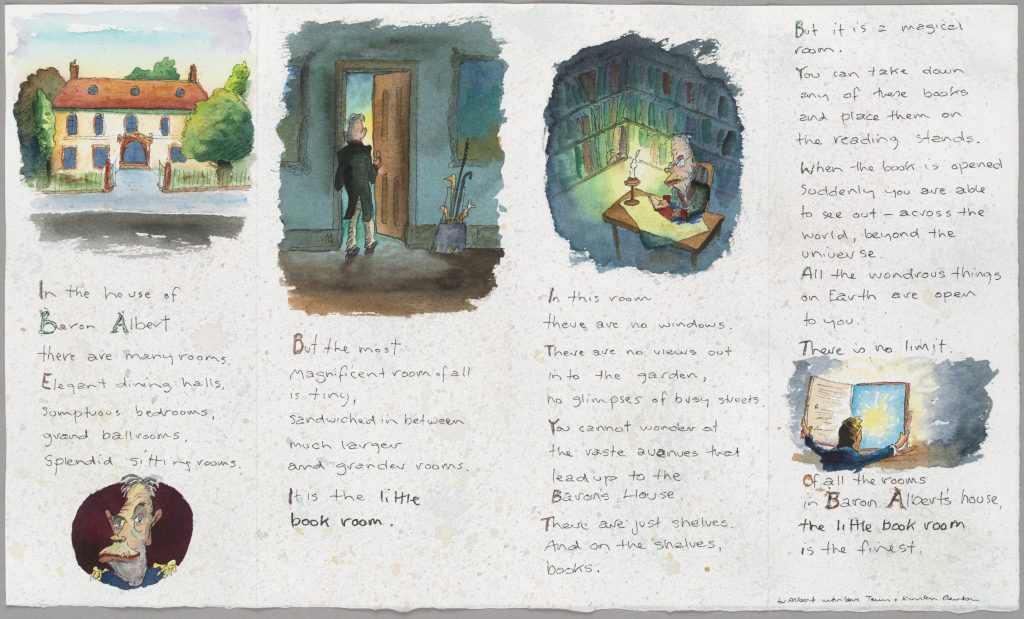 In the house of
Baron Albert
there are many rooms.
Elegant dining halls,
sumptuous bedrooms,
grand ballrooms.
Splendid sitting rooms.
But the most
Magnificent room of all
is tiny,
sandwiched in between
much larger
and grander rooms.
It is the little
book room.
In this room
there are no windows.
There are no views out
into the garden,
no glimpses of busy streets.
You cannot wonder at
the vaste avenues that
lead up to the
Baron's House.
There are just shelves.
And on the shelves,
books.
But it is a magical
room.
You can take down
any of these books
and place them on
the reading stands.
When the book is opened
Suddenly you are able
to see out – across the
world, beyond the
universe.
All the wondrous things
on Earth are open
to you.
There is no limit.
Of all the rooms
in Baron Albert's house,
the little book room
is the finest.
Albert with love